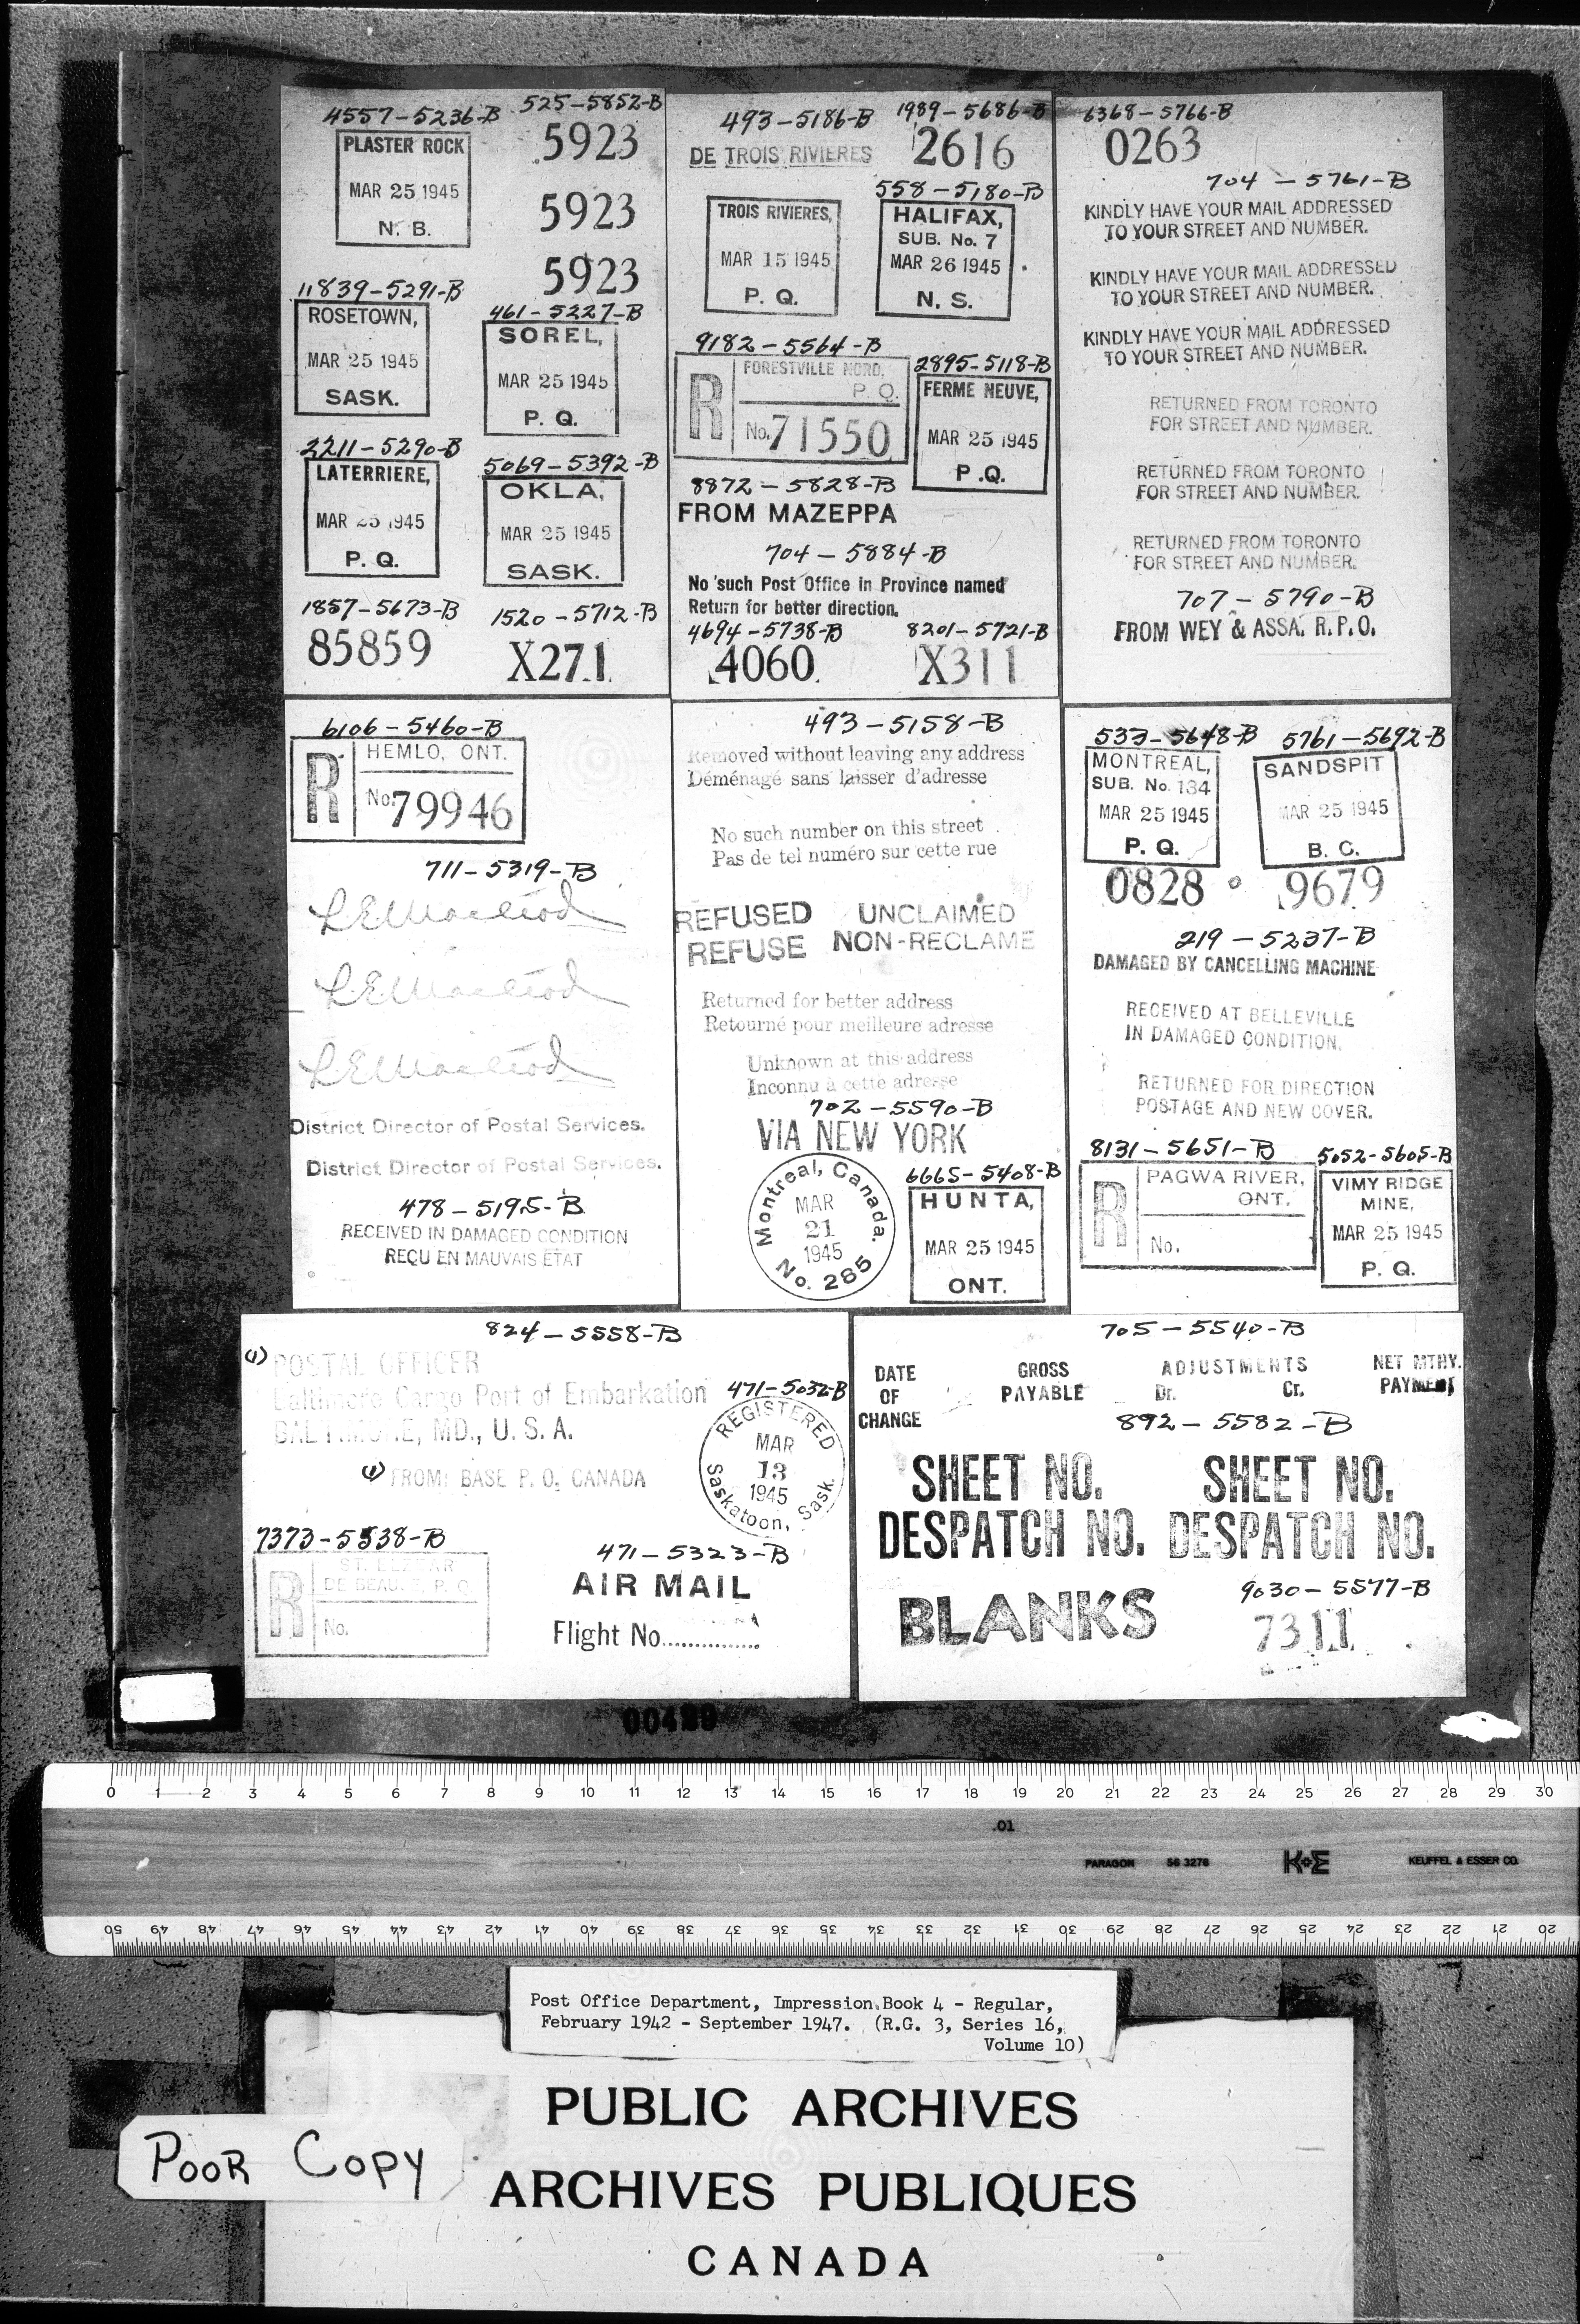 4557-5236-B
PLASTER ROCK
MAR 25 1945
N. B.
525-5852-B
5923
5923
5923
11839-5291-B
ROSETOWN,
MAR 25 1945
SASK.
461-5227-B
SOREL,
MAR 25 1945
P. Q.
2211-5290-B
LATERRIERE,
MAR 25 1945
P. Q.
5069-5392-B
OKLA,
MAR 25 1945
SASK.
1857-5673-B
85859
1520-5712-B
X271
493-5186-B
DE TROIS RIVIERES
1989-5686-B
2616
TROIS RIVIERES,
MAR 15 1945
P. Q.
558-5180-B
HALIFAX,
SUB. No. 7
MAR 26 1945
N. S.
9182-5564-B
R
FORESTVILLE NORD,
P. Q.
No. 71550
2895-5118-B
FERME NEUVE,
MAR 25 1945
P.Q.
8872-5828-B
FROM MAZEPPA
704-5884-B
No such Post Office in Province named
Return for better direction.
4694-5738-B
4060
8201-5721-B
X311
6368-5766-B
0263
704-5761-B
KINDLY HAVE YOUR MAIL ADDRESSED
TO YOUR STREET AND NUMBER.
KINDLY HAVE YOUR MAIL ADDRESSED
TO YOUR STREET AND NUMBER.
KINDLY HAVE YOUR MAIL ADDRESSED
TO YOUR STREET AND NUMBER.
RETURNED FROM TORONTO
FOR STREET AND NUMBER.
RETURNED FROM TORONTO
FOR STREET AND NUMBER.
RETURNED FROM TORONTO
FOR STREET AND NUMBER.
707-5790-B
FROM WEY & ASSA. R.P.O.
6106-5460-B
R
HEMLO, ONT.
No. 79946
711-5319-B
L E Macleod
L E Macleod
L E Macleod
District Director of Postal Services.
District Director of Postal Services.
478-5195-B
RECEIVED IN DAMAGED CONDITION
REÇU EN MAUVAIS ETAT
493-5158-B
Removed without leaving any address
Déménagé sans laisser d'adresse
No such number on this street
Pas de tel numéro sur cette rue
REFUSED
REFUSE
UNCLAIMED
NON-RECLAME
Returned for better address
Retourné pour meilleure adresse
Unknown at this address
Inconnu à cette adresse
702-5590-B
VIA NEW YORK
Montreal, Canada.
MAR
21
1945
No. 285
6665-5408-B
HUNTA,
MAR 25 1945
ONT.
533-5648-B
MONTREAL,
SUB. No. 134
MAR 25 1945
P. Q.
0828
5761-5692-B
SANDSPIT
MAR 25 1945
B. C.
9679
219-5237-B
DAMAGED BY CANCELLING MACHINE
RECEIVED AT BELLEVILLE
IN DAMAGED CONDITION.
RETURNED FOR DIRECTION
POSTAGE AND NEW COVER.
8131-5651-B
R
PAGWA RIVER,
ONT.
No.
5052-5605-B
VIMY RIDGE
MINE,
MAR 25 1945
P. Q.
824-5558-B
(1) POSTAL OFFICER
Baltimore Cargo Port of Embarkation
BALTIMORE, MD., U. S. A.
(1) FROM: BASE P. O. CANADA
471-5032-B
REGISTERED
MAR
13
1945
Saskatoon, Sask.
7373-5538-B
R
DE BEAUCE, P. Q.
No.
471-5323-B
AIR MAIL
Flight No...............
705-5540-B
DATE
OF
CHANGE
GROSS
PAYABLE
ADJUSTMENTS
Dr. Cr.
NET MTHY.
PAYMENT
892-5582-B
SHEET NO. SHEET NO.
DESPATCH NO. DESPATCH NO.
BLANKS
9030-5577-B
7311
0 1 2 3 4 5 6 7 8 9 10 11 12 13 14 15 16 17 18 19 20 21 22 23 24 25 26 27 28 29 30
.01
PARAGON 56 3278 K+E KEUFFEL & ESSER CO.
50 49 48 47 46 45 44 43 42 41 40 39 38 37 36 35 34 33 32 31 30 29 28 27 26 25 24 23 22 21 20
Post Office Department, Impression Book 4 - Regular,
February 1942 - September 1947. (R.G. 3, Series 16,
Volume 10)
PUBLIC ARCHIVES
POOR COPY
ARCHIVES PUBLIQUES
CANADA